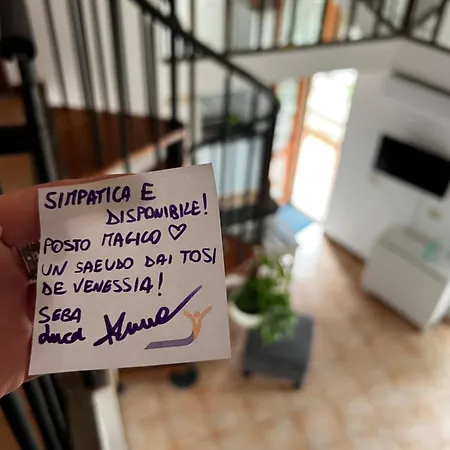 SIMPATICA E
DISPONIBILE!
POSTO MAGICO ♡
UN SAEUDO DAI TOSI
DE VENESSIA!
SEBA
Luca Anna